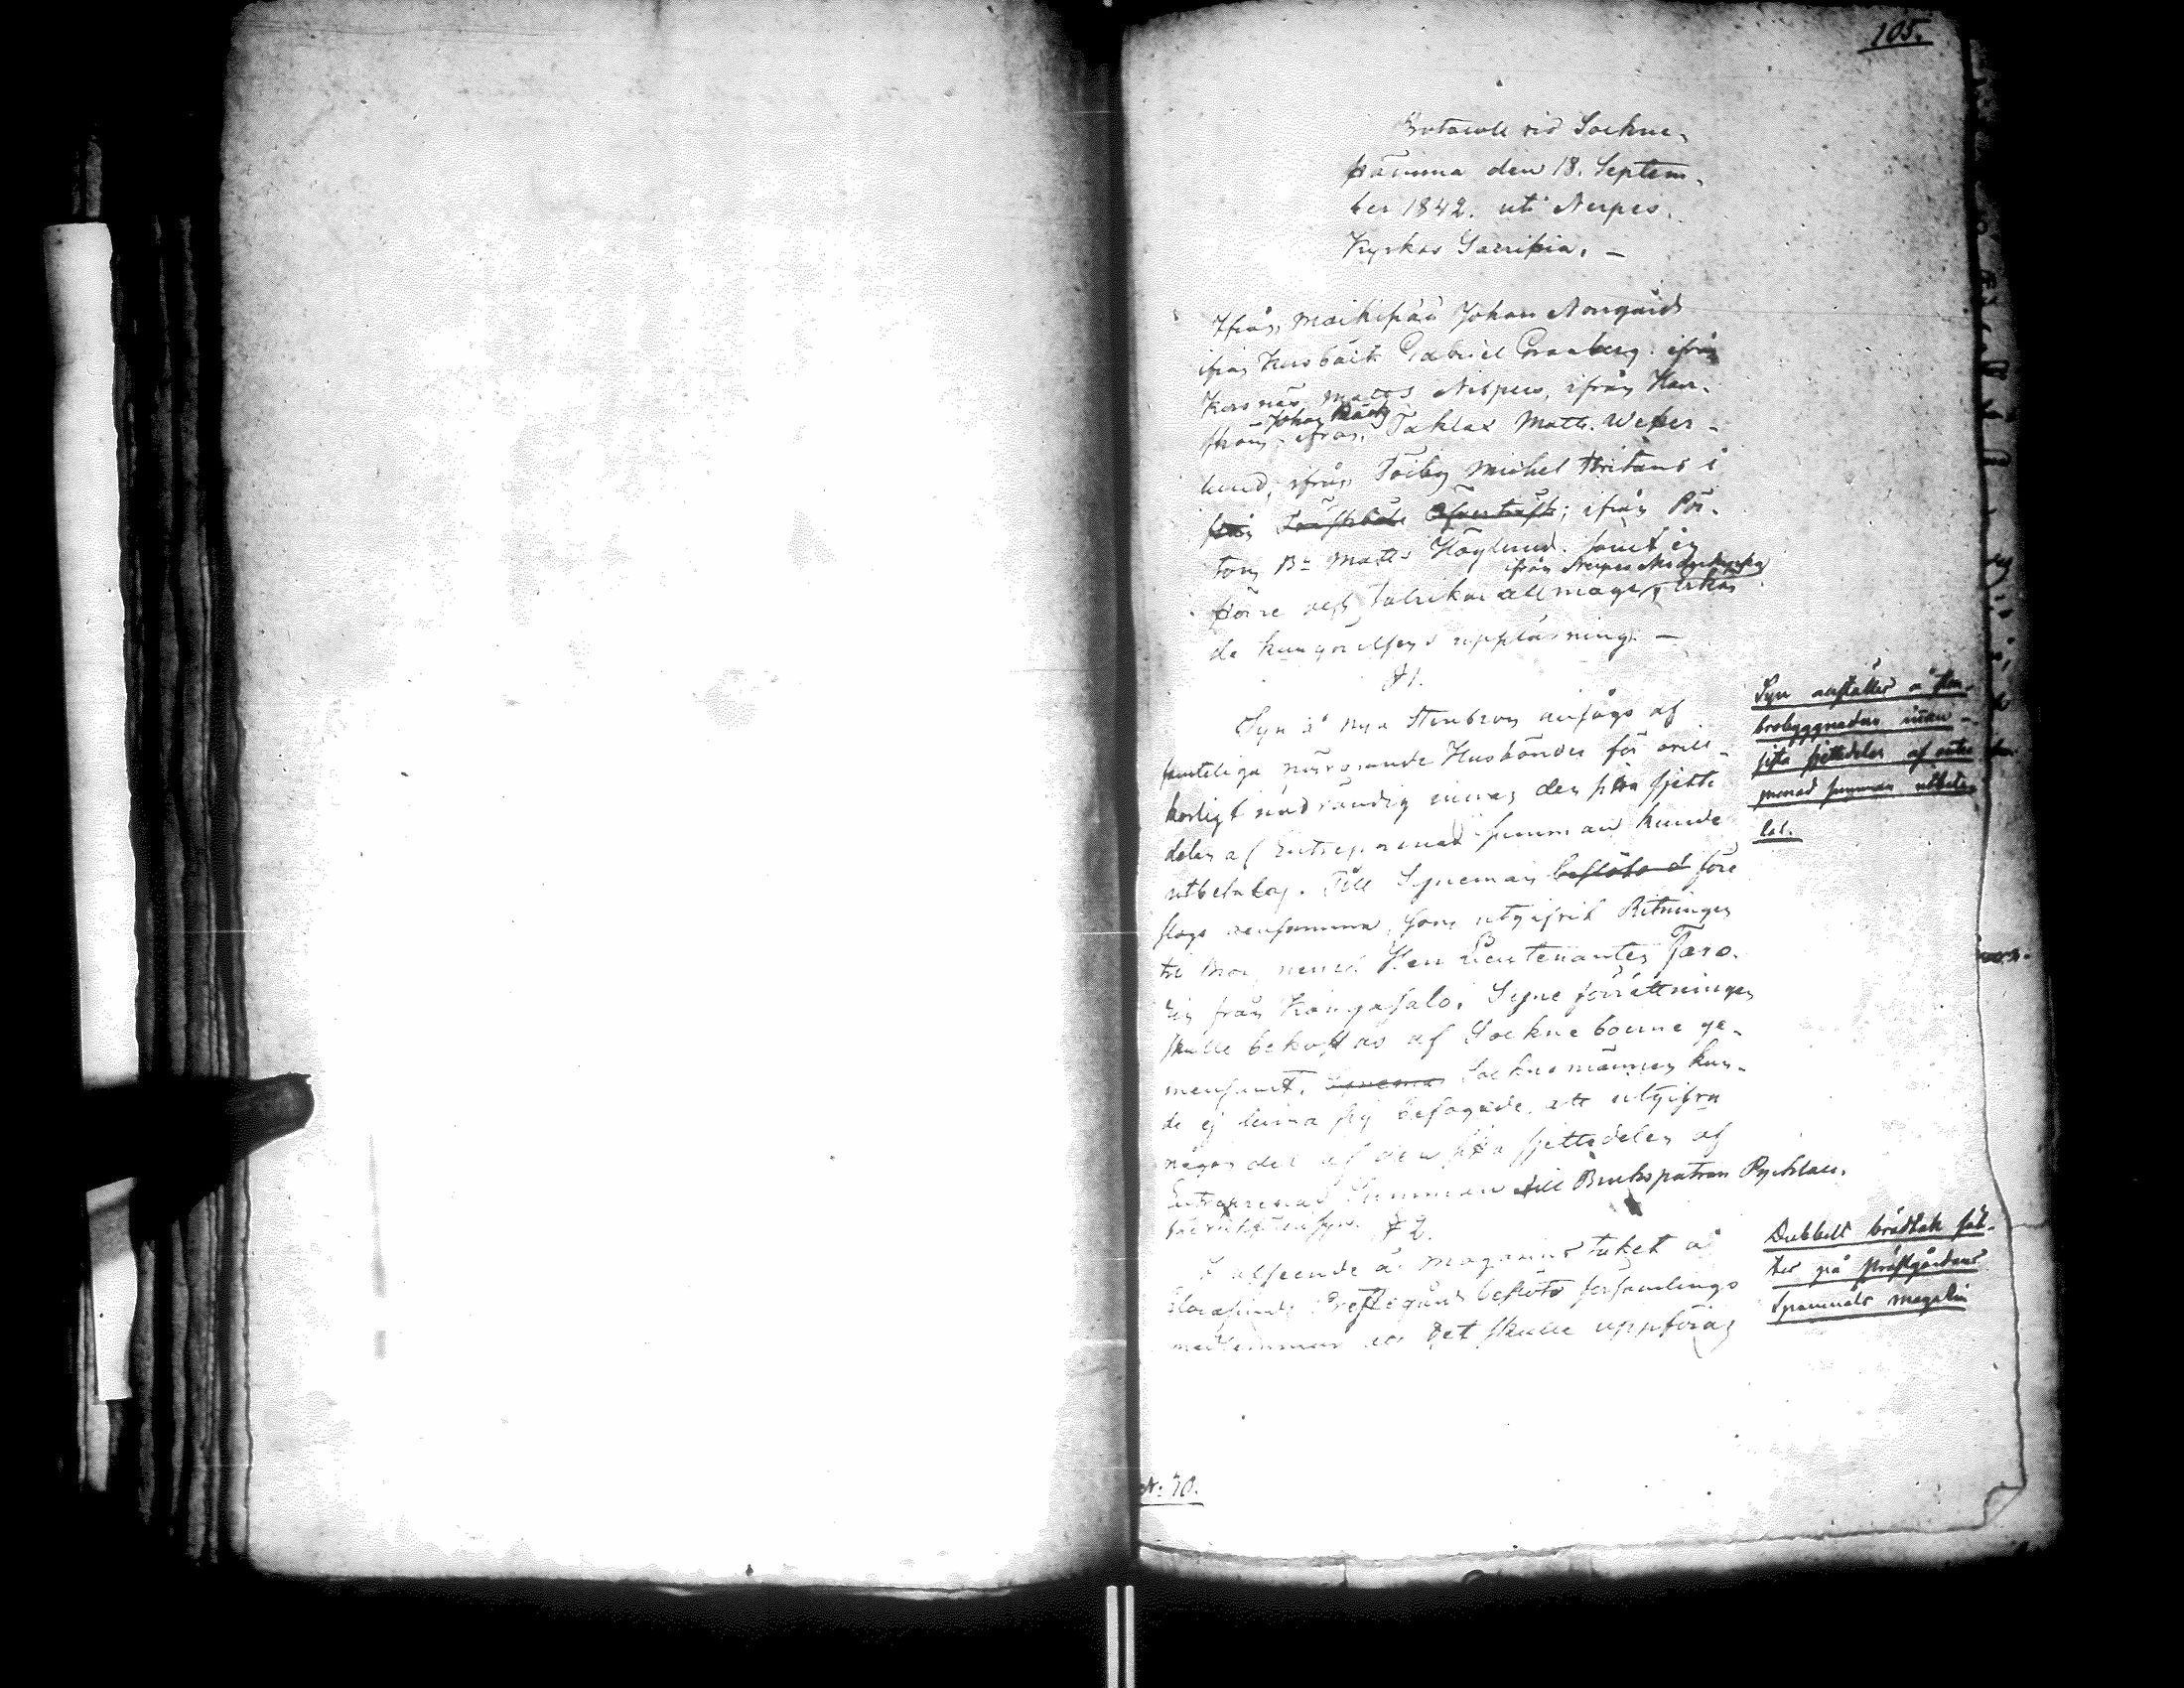 105.
Protocoll vid Sockne-
stämma den 18. Septem-
ber 1842. uti Nerpes
Kyrkas Sacristia. –
Ifrån Moikipää Johan Norrgård
ifrån Husbäck Gabriel Granberg ifrån
Korsnäs Matts Nispus, ifrån Har-
ström Johan Bäck ifrån Taklax Matts Wester-
lund, ifrån Töiby Michel
ifrån Pör-
tom Bn Matts Höglund. samt en
större del talrikare allmoge, ifrån Nerpes
de kungörelsens uppläsning. –
§ 1.
Syn å nya Stenbron ansågs af
samteliga närvarande Husbönder för ovill-
korligt nödvändig innan den sista sjette
delen af Entreprenad summan kunde
utbetalas. Till Syneman beslöts d före
slogs densamma, som utgifvit Ritningen
till Bron, neml. Herr Lieutenanten
från Kangasalo. Syne förrättningen
skulle bekostas af Sockneboerne ge-
mensamt. Synemän Socknemännen kun-
de ej finna sig befogade att utgifva
någon del af den sista sjettedelen af
Entreprenad Summan till Bruks patron
före
§ 2.
I afseende å magasins taket å
Prestegård beslöto församlings
medlemmar att det skulle uppföras
Syn anställes å sten-
brobyggnaden innan
sista sjettedelen af entre
prenad summan utbeta-
las.
Dubbelt brädtak sät-
tes på prästgårdens
Spannmåls magazin
N: 30.